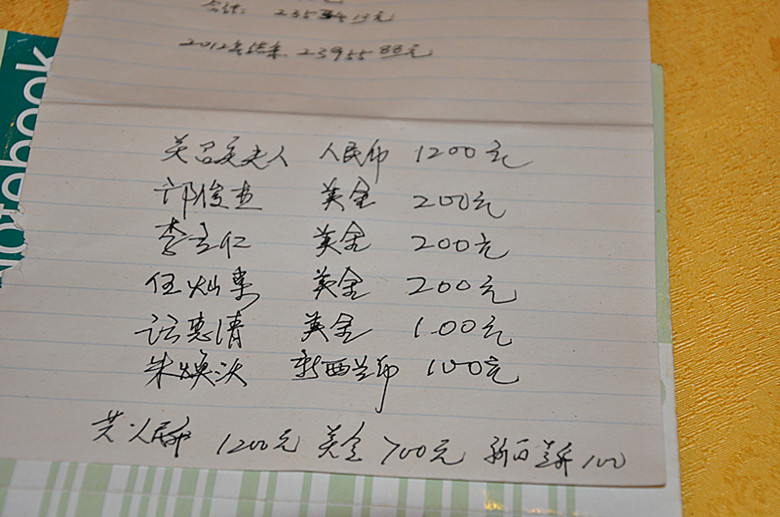 合计: 235 13元
2012年结余 23955 88元
Notebook
夫人 人民币 1200元
邝俊 美金 200元
李 仁 美金 200元
伍灿 美金 200元
惠清 美金 100元
朱焕 新西兰币 100元
共:人民币 1200元 美金 700元 新西兰币 100